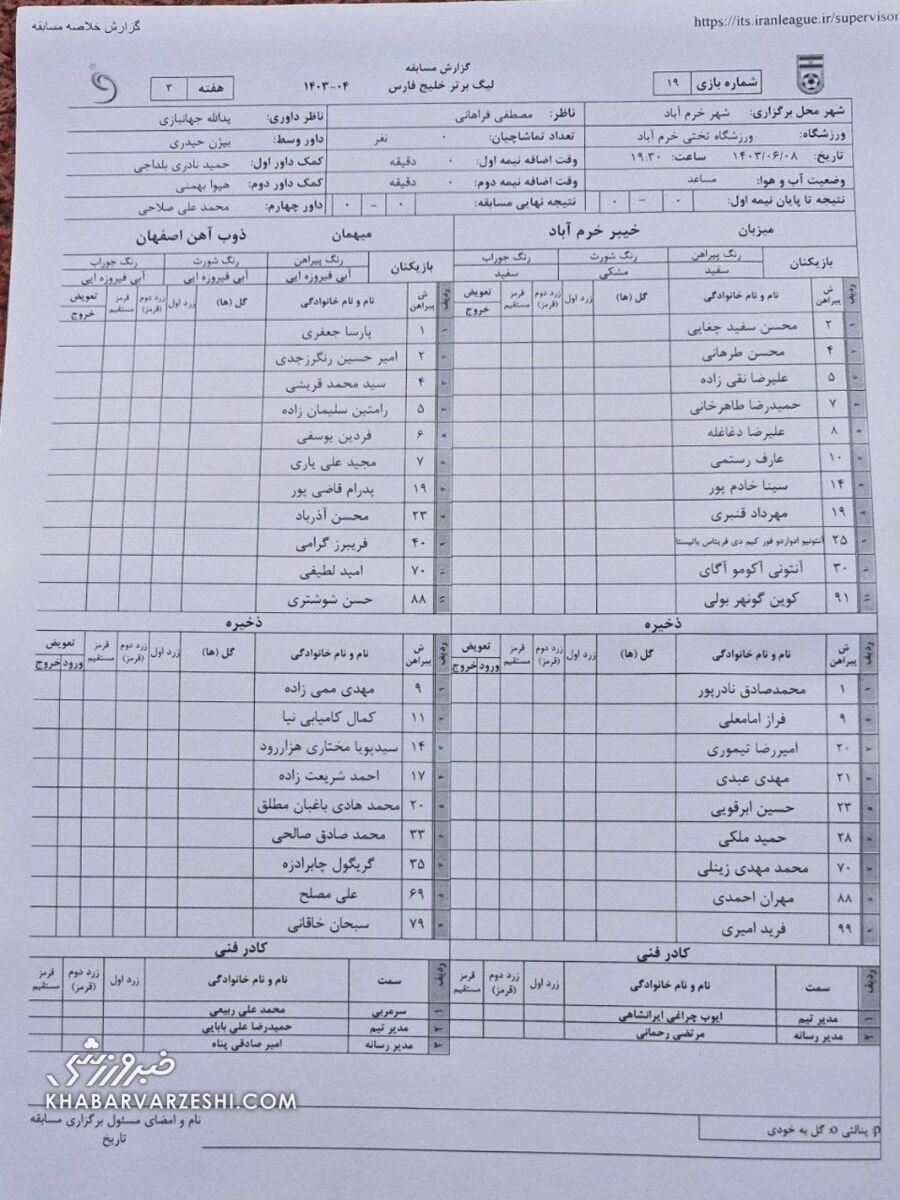 گزارش خلاصه مسابقه
https://its.iranleague.ir/supervisor
گزارش مسابقه
شماره بازی ۱۹
لیگ برتر خلیج فارس ۰۴-۱۴۰۳
هفته ۳
شهر محل برگزاری: شهر خرم آباد
ناظر: مصطفی فراهانی
ناظر داوری: یدالله جهانبازی
ورزشگاه: ورزشگاه تختی خرم آباد
تعداد تماشاچیان: ۰ نفر
داور وسط: بیژن حیدری
تاریخ: ۱۴۰۳/۰۶/۰۸ ساعت: ۱۹:۳۰
وقت اضافه نیمه اول: ۰ دقیقه
کمک داور اول: حمید نادری بلداجی
وضعیت آب و هوا: مساعد
وقت اضافه نیمه دوم: ۰ دقیقه
کمک داور دوم: هیوا بهمنی
نتیجه تا پایان نیمه اول: ۰ – ۰
نتیجه نهایی مسابقه: ۰ – ۰
داور چهارم: محمد علی صلاحی
میزبان خیبر خرم آباد
بازیکنان رنگ پیراهن رنگ شورت رنگ جوراب
سفید مشکی سفید
ردیف ش پیراهن نام و نام خانوادگی گل (ها) زرد اول زرد دوم (قرمز) قرمز مستقیم تعویض خروج
۲ محسن سفید چغایی
۴ محسن طرهانی
۵ علیرضا نقی زاده
۷ حمیدرضا طاهرخانی
۸ علیرضا دغاغله
۱۰ عارف رستمی
۱۴ سینا خادم پور
۱۹ مهرداد قنبری
۲۵ آنتونیو ادواردو فور کیم دی فریتاس باتیستا
۳۰ آنتونی آکومو آگای
۹۱ کوین گونهر بولی
ذخیره
ردیف ش پیراهن نام و نام خانوادگی گل (ها) زرد اول زرد دوم (قرمز) قرمز مستقیم تعویض ورود خروج
۱ محمدصادق نادرپور
۹ فراز امامعلی
۲۰ امیررضا تیموری
۲۱ مهدی عبدی
۲۳ حسین ابرقویی
۲۸ حمید ملکی
۷۰ محمد مهدی زینلی
۸۸ مهران احمدی
۹۹ فرید امیری
کادر فنی
ردیف سمت نام و نام خانوادگی زرد اول زرد دوم (قرمز) قرمز مستقیم
۱ مدیر تیم ایوب چراغی ایرانشاهی
۲ مدیر رسانه مرتضی رحمانی
میهمان ذوب آهن اصفهان
بازیکنان رنگ پیراهن رنگ شورت رنگ جوراب
آبی فیروزه ایی آبی فیروزه ایی آبی فیروزه ایی
ردیف ش پیراهن نام و نام خانوادگی گل (ها) زرد اول زرد دوم (قرمز) قرمز مستقیم تعویض خروج
۱ پارسا جعفری
۲ امیر حسین رنگرزجدی
۴ سید محمد قریشی
۵ رامتین سلیمان زاده
۶ فردین یوسفی
۷ مجید علی یاری
۱۹ پدرام قاضی پور
۲۳ محسن آذرباد
۴۰ فریبرز گرامی
۷۰ امید لطیفی
۸۸ حسن شوشتری
ذخیره
ردیف ش پیراهن نام و نام خانوادگی گل (ها) زرد اول زرد دوم (قرمز) قرمز مستقیم تعویض ورود خروج
۹ مهدی ممی زاده
۱۱ کمال کامیابی نیا
۱۴ سیدپویا مختاری هزاررود
۱۷ احمد شریعت زاده
۲۰ محمد هادی باغبان مطلق
۳۳ محمد صادق صالحی
۳۵ گریگول چابرادزه
۶۹ علی مصلح
۷۹ سبحان خاقانی
کادر فنی
ردیف سمت نام و نام خانوادگی زرد اول زرد دوم (قرمز) قرمز مستقیم
۱ سرمربی محمد علی ربیعی
۲ مدیر تیم حمیدرضا علی بابایی
۳ مدیر رسانه امیر صادقی پناه
خبرورزشی
KHABARVARZESHI.COM
p: پنالتی o: گل به خودی
نام و امضای مسئول برگزاری مسابقه
تاریخ